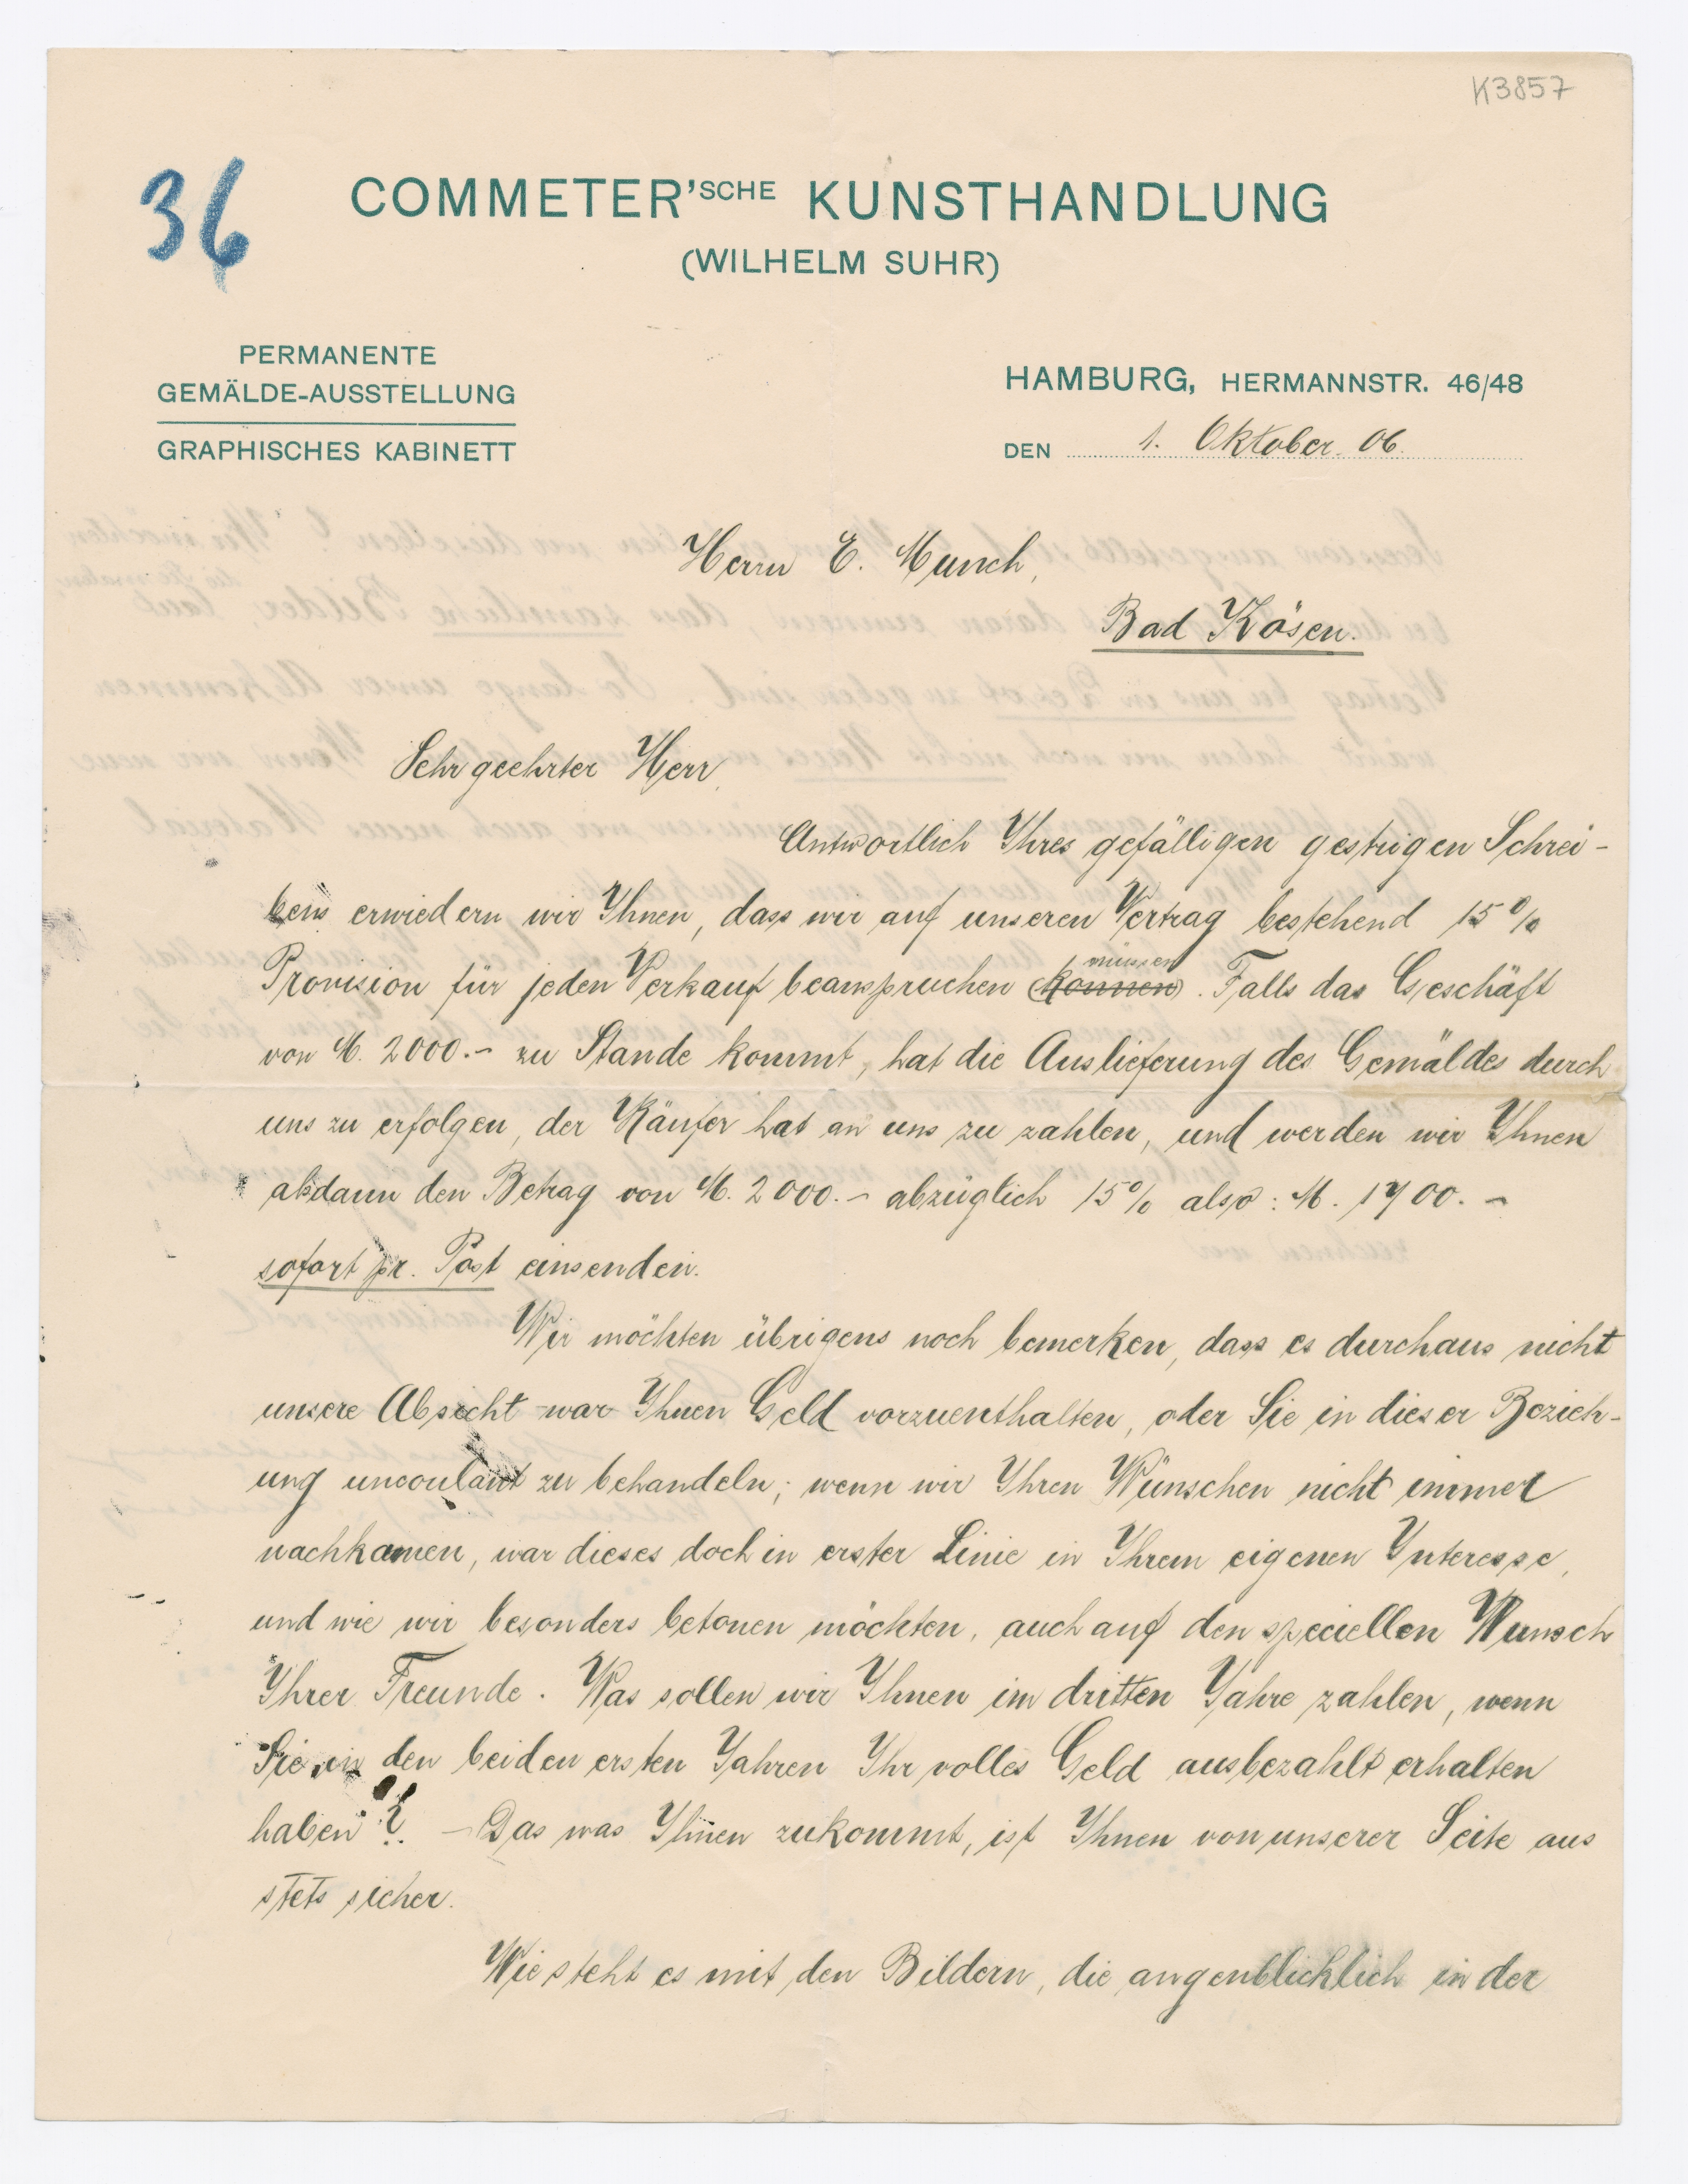 K3857
36
COMMETER'SCHE KUNSTHANDLUNG
(WILHELM SUHR)
PERMANENTE
GEMÄLDE-AUSSTELLUNG
GRAPHISCHES KABINETT
HAMBURG, HERMANNSTR. 46/48
DEN 1. Oktober 06.
Herrn E. Munch,
Bad Kösen.
Sehr geehrter Herr,
Antwortlich Ihres gefälligen gestrigen Schrei-
bens erwiedern wir Ihnen, dass wir auf unseren Vertrag bestehend 15%
müssen
Provision für jeden Verkauf beanspruchen (können). Falls das Geschäft
von M. 2000.- zu Stande kommt, hat die Auslieferung des Gemäldes durch
uns zu erfolgen, der Käufer hat an uns zu zahlen, und werden wir Ihnen
alsdann den Betrag von M. 2000.- abzüglich 15% also: M. 1700.-
sofort pr. Post einsenden.
Wir möchten übrigens noch bemerken, dass es durchaus nicht
unsere Absicht war Ihnen Geld vorzuenthalten, oder Sie in dieser Bezieh-
ung uncoulant zu behandeln; wenn wir Ihren Wünschen nicht immer
nachkamen, war dieses doch in erster Linie in Ihrem eigenen Interesse,
und wie wir besonders betonen möchten, auch auf den speciellen Wunsch
Ihrer Freunde. Was sollen wir Ihnen im dritten Jahre zahlen, wenn
Sie in den beiden ersten Jahren Ihr volles Geld ausbezahlt erhalten
haben?! - Das was Ihnen zukommt, ist Ihnen von unserer Seite aus
stets sicher.
Wie steht es mit den Bildern, die augenblicklich in der